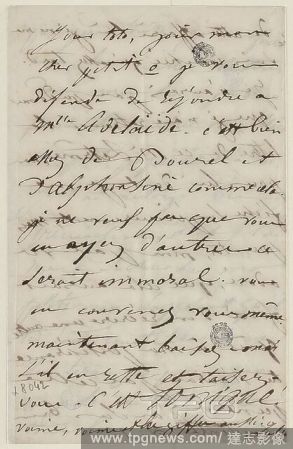 jour toto, jour mon
cher petit o je vous
défends de répondre à
Mlle Adelaïde. C'est bien
assez de Pourel et
d'alphonsine comme cela
je ne veux pas que vous
en ayez d'autres ce
serait immoral. vous
en convenez vous même
maintenant baisez-moi
et taisez
vous. C'est
18042
www.tpgnews.com / 達志影像